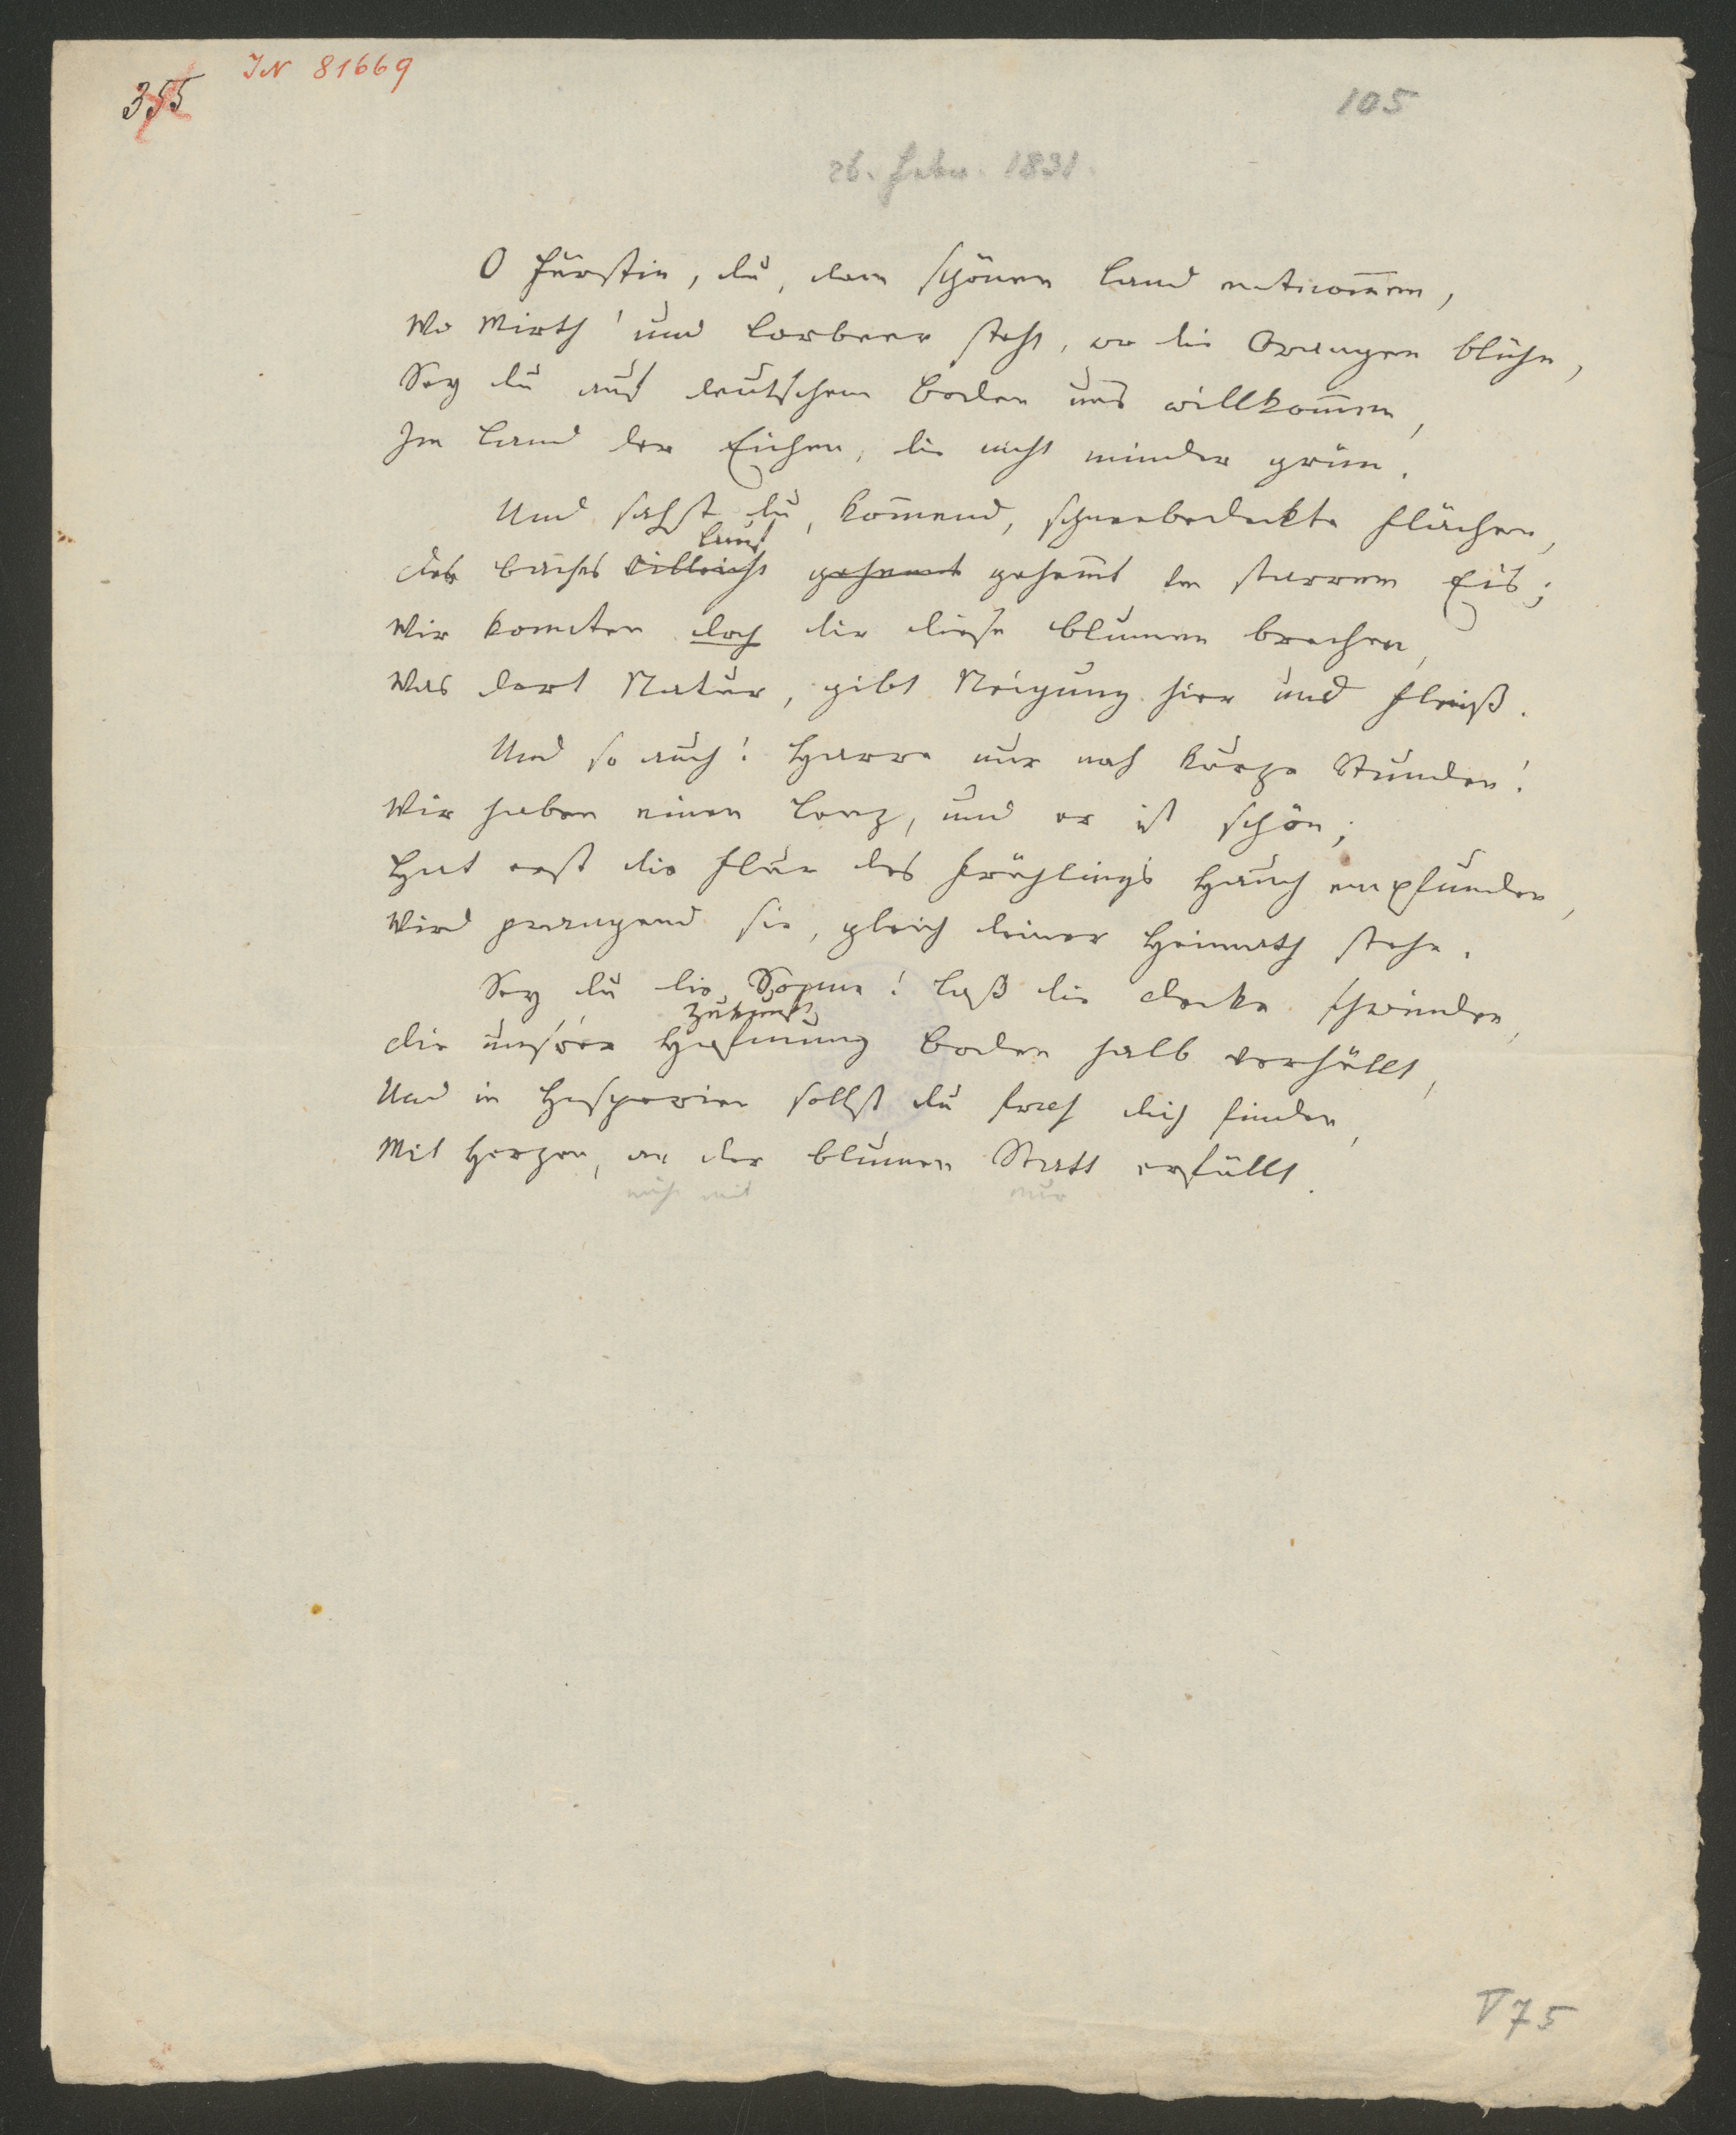 IN 81669
355
105
26. Febr. 1831.
O Fürstin, du, dem schönen Land entnom̄en,
Wo Mirth' und Lorbeer steht, wo die Orangen blühn,
Sey du auf deutschem Boden uns willkom̄en,
Im Land der Eichen, die nicht minder grün.
Und sahst du, kom̄end, schneebedeckte Flächen,
Lauf
Des Baches vielleicht gehemmt gehem̄t in starrem Eis;
Wir konnten doch dir diese Blumen brechen,
Was dort Natur, gibt Neigung hier und Fleiß.
Und so auch! Harre nur noch kurze Stunden!
Wir haben einen Lenz, und er ist schön;
Hat erst die Flur des Frühlings Hauch empfunden,
Wird prangend sie, gleich deiner Heimath stehn.
Sey du die Sonne! laß die Decke schwinden,
Zukunft
Die unsrer Hofnung Boden halb verhüllt,
Und in Hesperien sollst du froh dich finden,
Mit Herzen, an der Blumen Statt erfüllt.
nicht mit nur
V 75